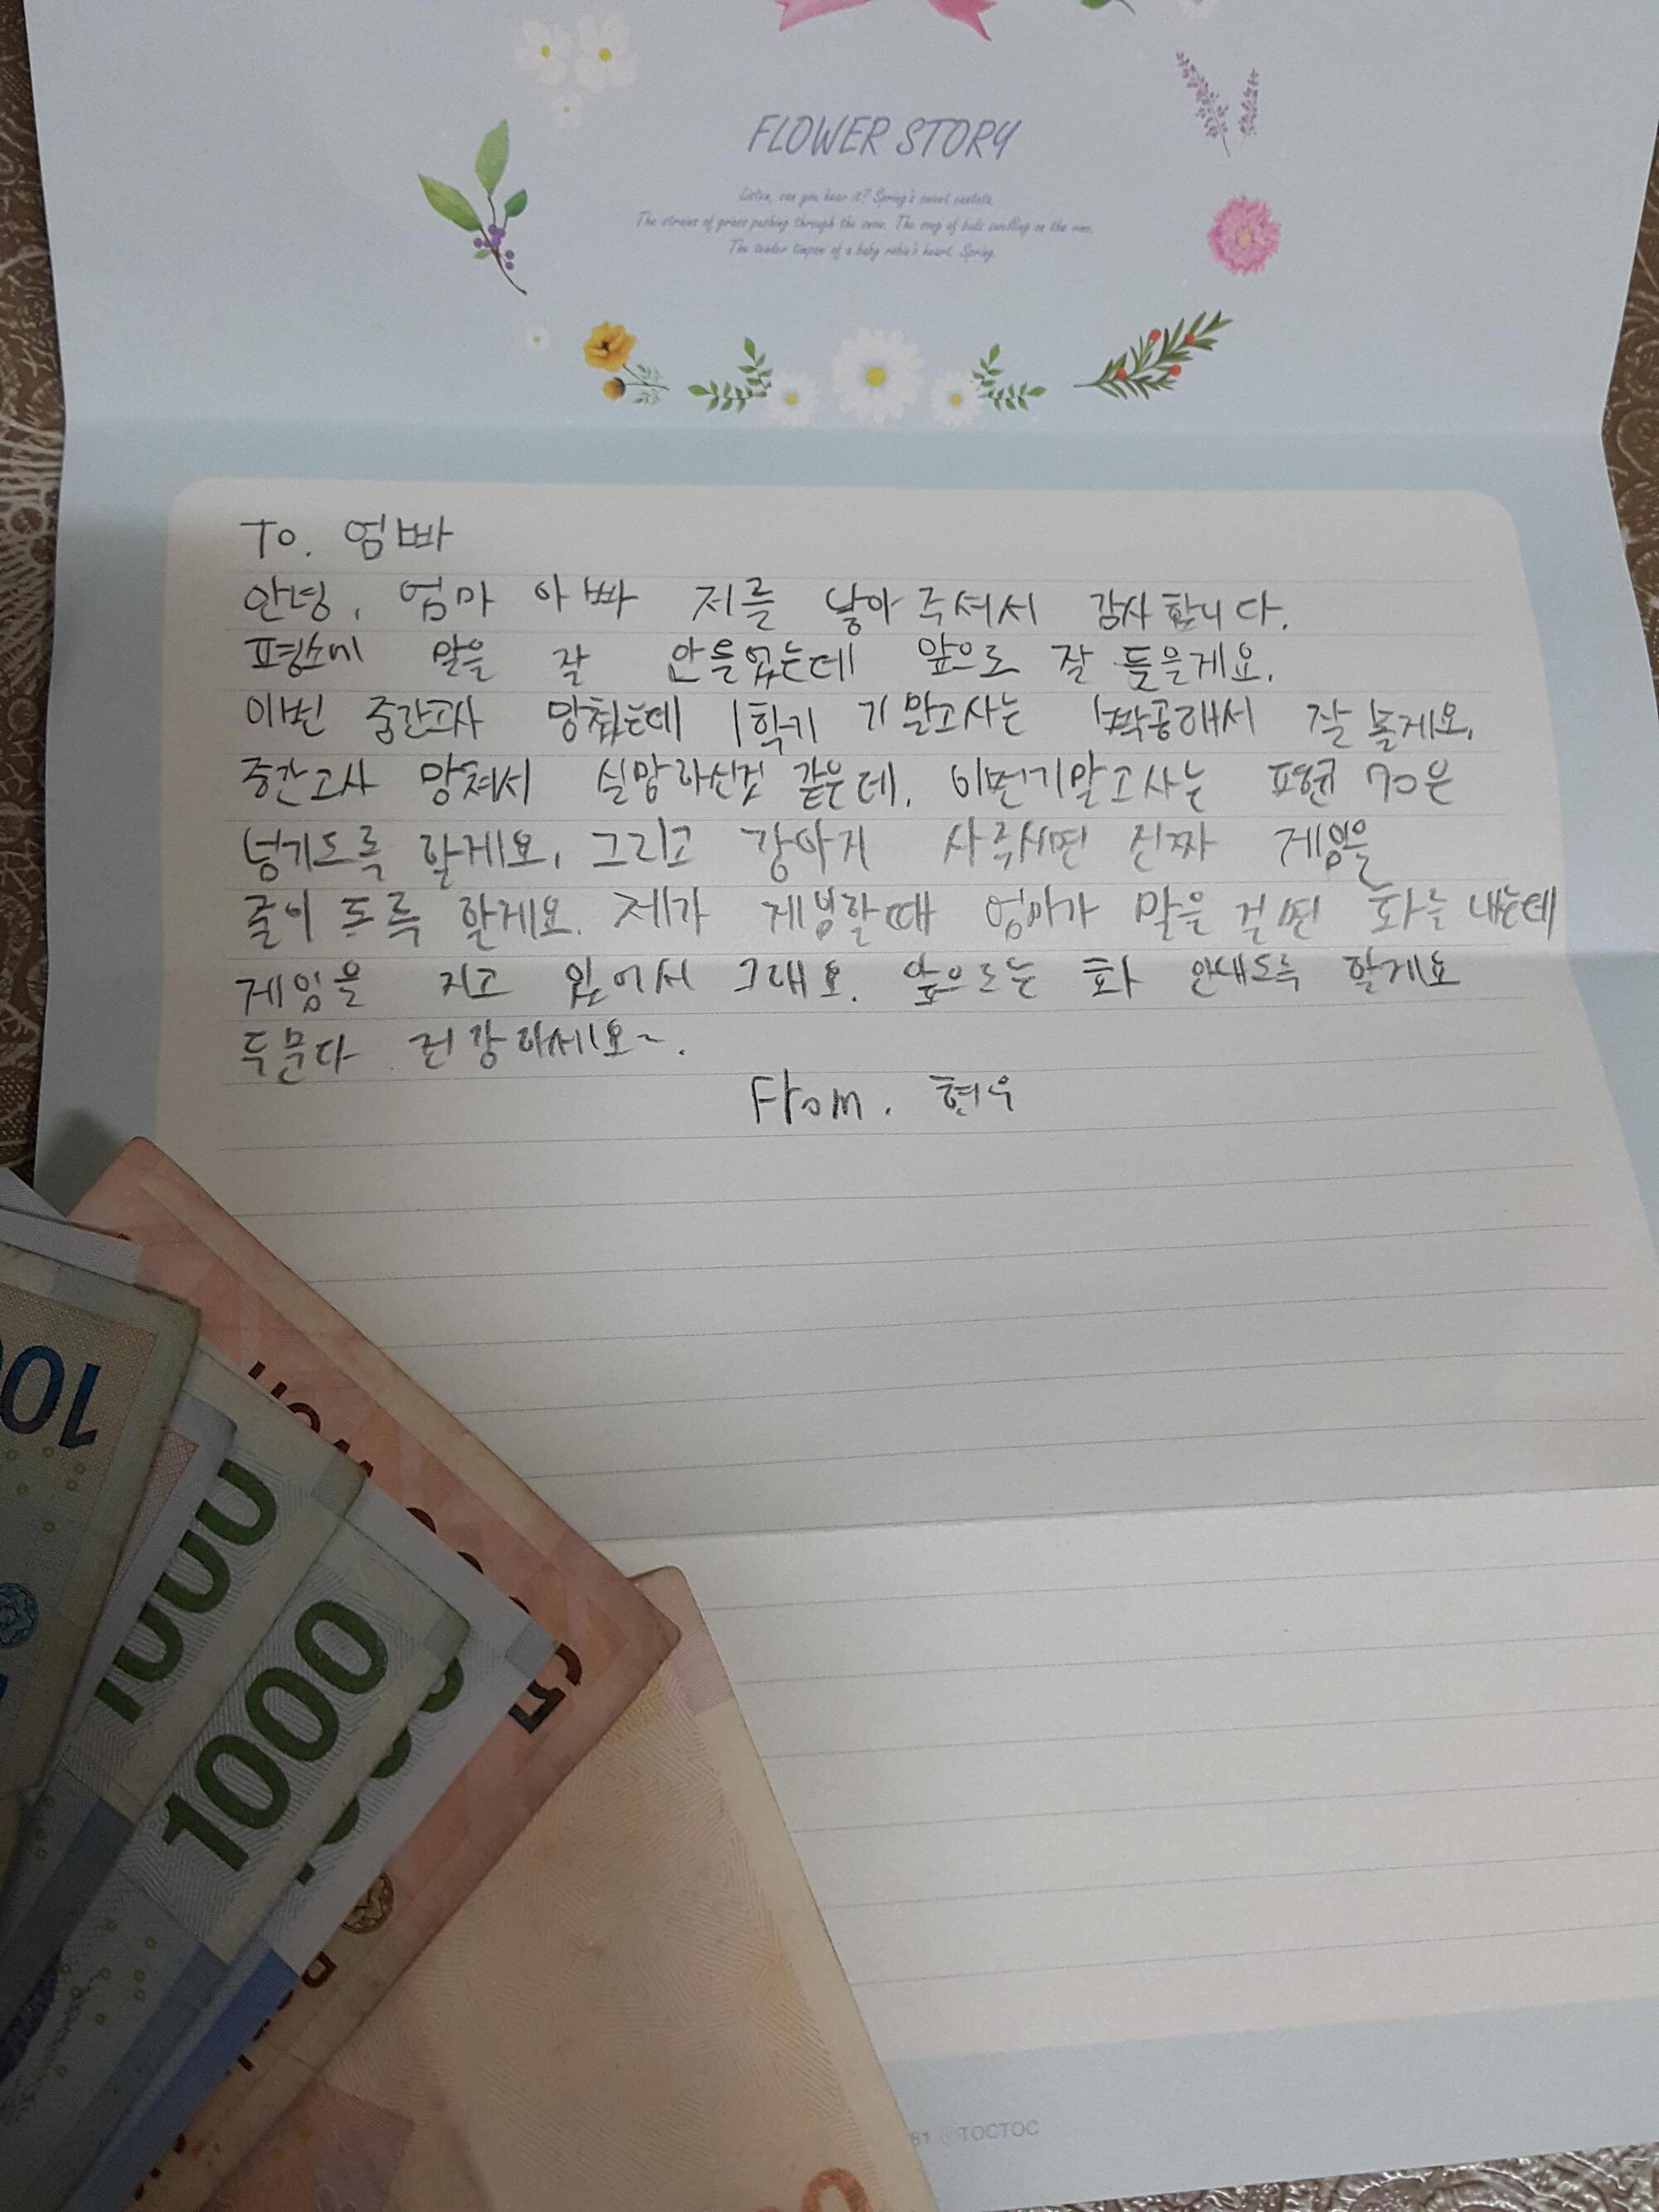 FLOWER STORY
Listen, can you hear it? Spring's sweet cantata.
The strains of grass pushing through the snow. The song of buds swelling on the vine.
The tender timpani of a baby robin's heart. Spring.
To. 엄빠
안녕, 엄마 아빠 저를 낳아 주셔서 감사합니다.
평소에 말을 잘 안들었는데 앞으로 잘 들을게요.
이번 중간고사 망쳤는데 1학기 기말고사는 빡공해서 잘 볼게요,
중간고사 망쳐서 실망하신것 같은데, 이번기말고사는 평균 70은
넘기도록 할게요, 그리고 강아지 사주시면 진짜 게임을
줄이도록 할게요. 제가 게임할때 엄마가 말을 걸면 화를 내는데
게임을 지고 있어서 그래요. 앞으로는 화 안내도록 할게요
두분다 건강하세요~.
From. 현우
1000
1000
81 ⓒTOCTOC